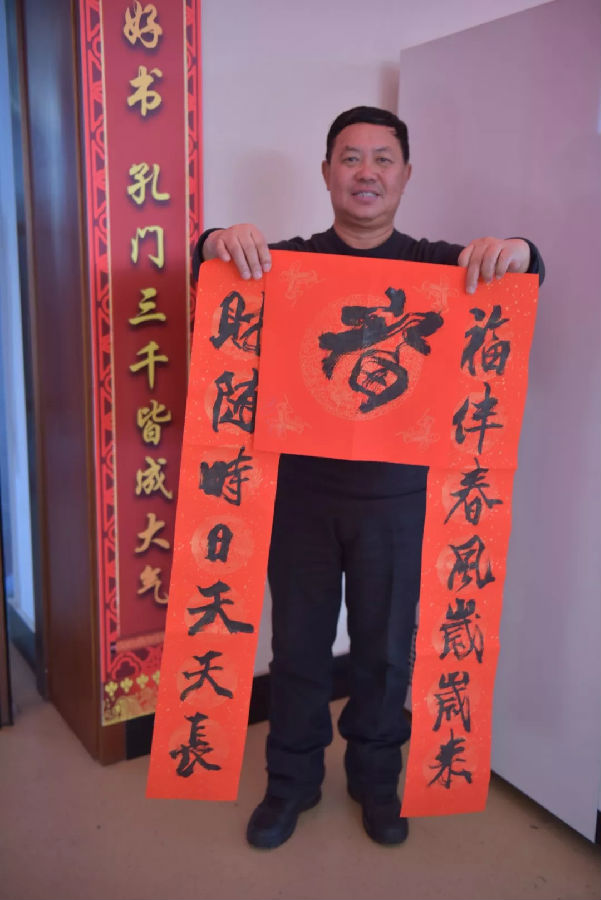 福伴春風歲歲来
春
財随時日天天長
好书 孔门三千皆成大气